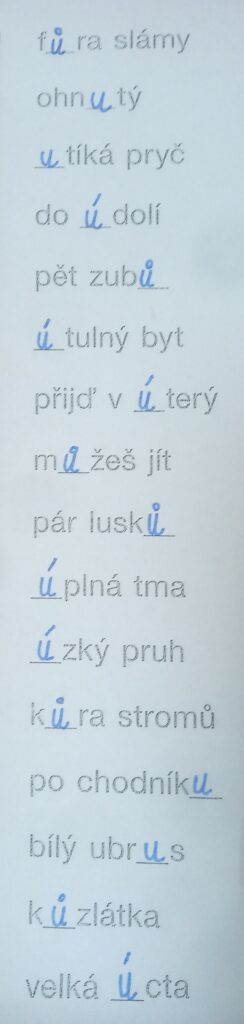 fůra slámy
ohnutý
utíká pryč
do údolí
pět zubů
útulný byt
přijď v úterý
můžeš jít
pár lusků
úplná tma
úzký pruh
kůra stromů
po chodníku
bílý ubrus
kůzlátka
velká úcta